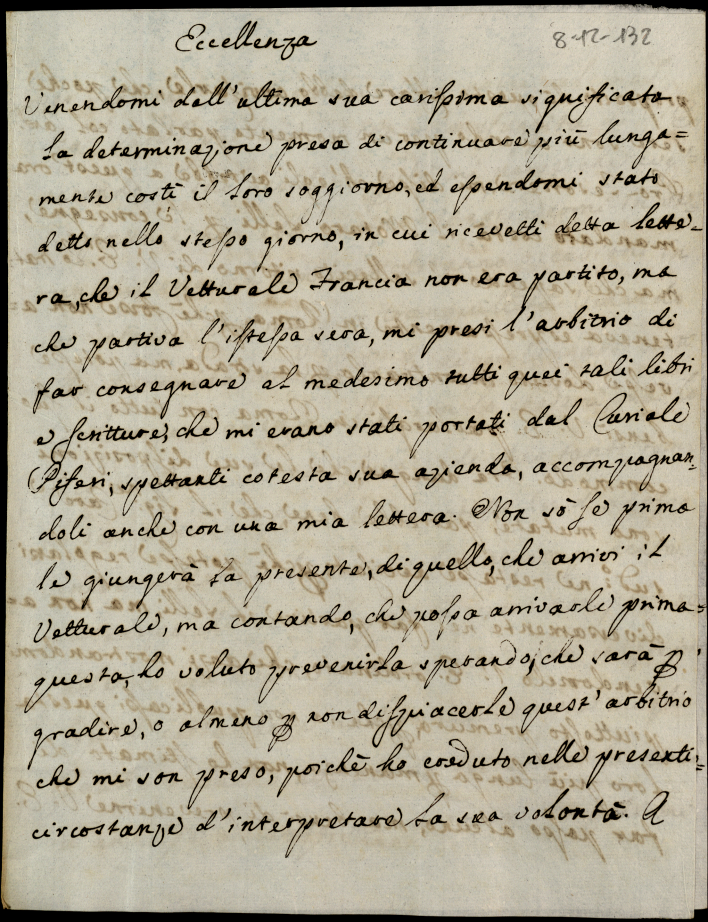 8-12-132
Eccellenza
Venendomi dall'ultima sua carissima significata
la determinazione presa di continuare più lunga=
mente costì il loro soggiorno, ed essendomi stato
detto nello stesso giorno, in cui ricevetti detta lette=
ra, che il Vetturale Francia non era partito, ma
che partiva l'istessa sera, mi presi l'arbitrio di
far consegnare al medesimo tutti quei tali libri
e scritture, che mi erano stati portati dal Curiale
Piferi, spettanti cotesta sua azienda, accompagnan=
doli anche con una mia lettera. Non sò se prima
le giungerà la presente, di quello, che arrivi il
Vetturale, ma contando, che possa arrivarle prima
questa, ho voluto prevenirla sperando, che sarà p
gradire, o almeno p non dispiacerle quest'arbitrio
che mi son preso, poichè ho creduto nelle presenti
circostanze d'interpretare la sua volontà. A